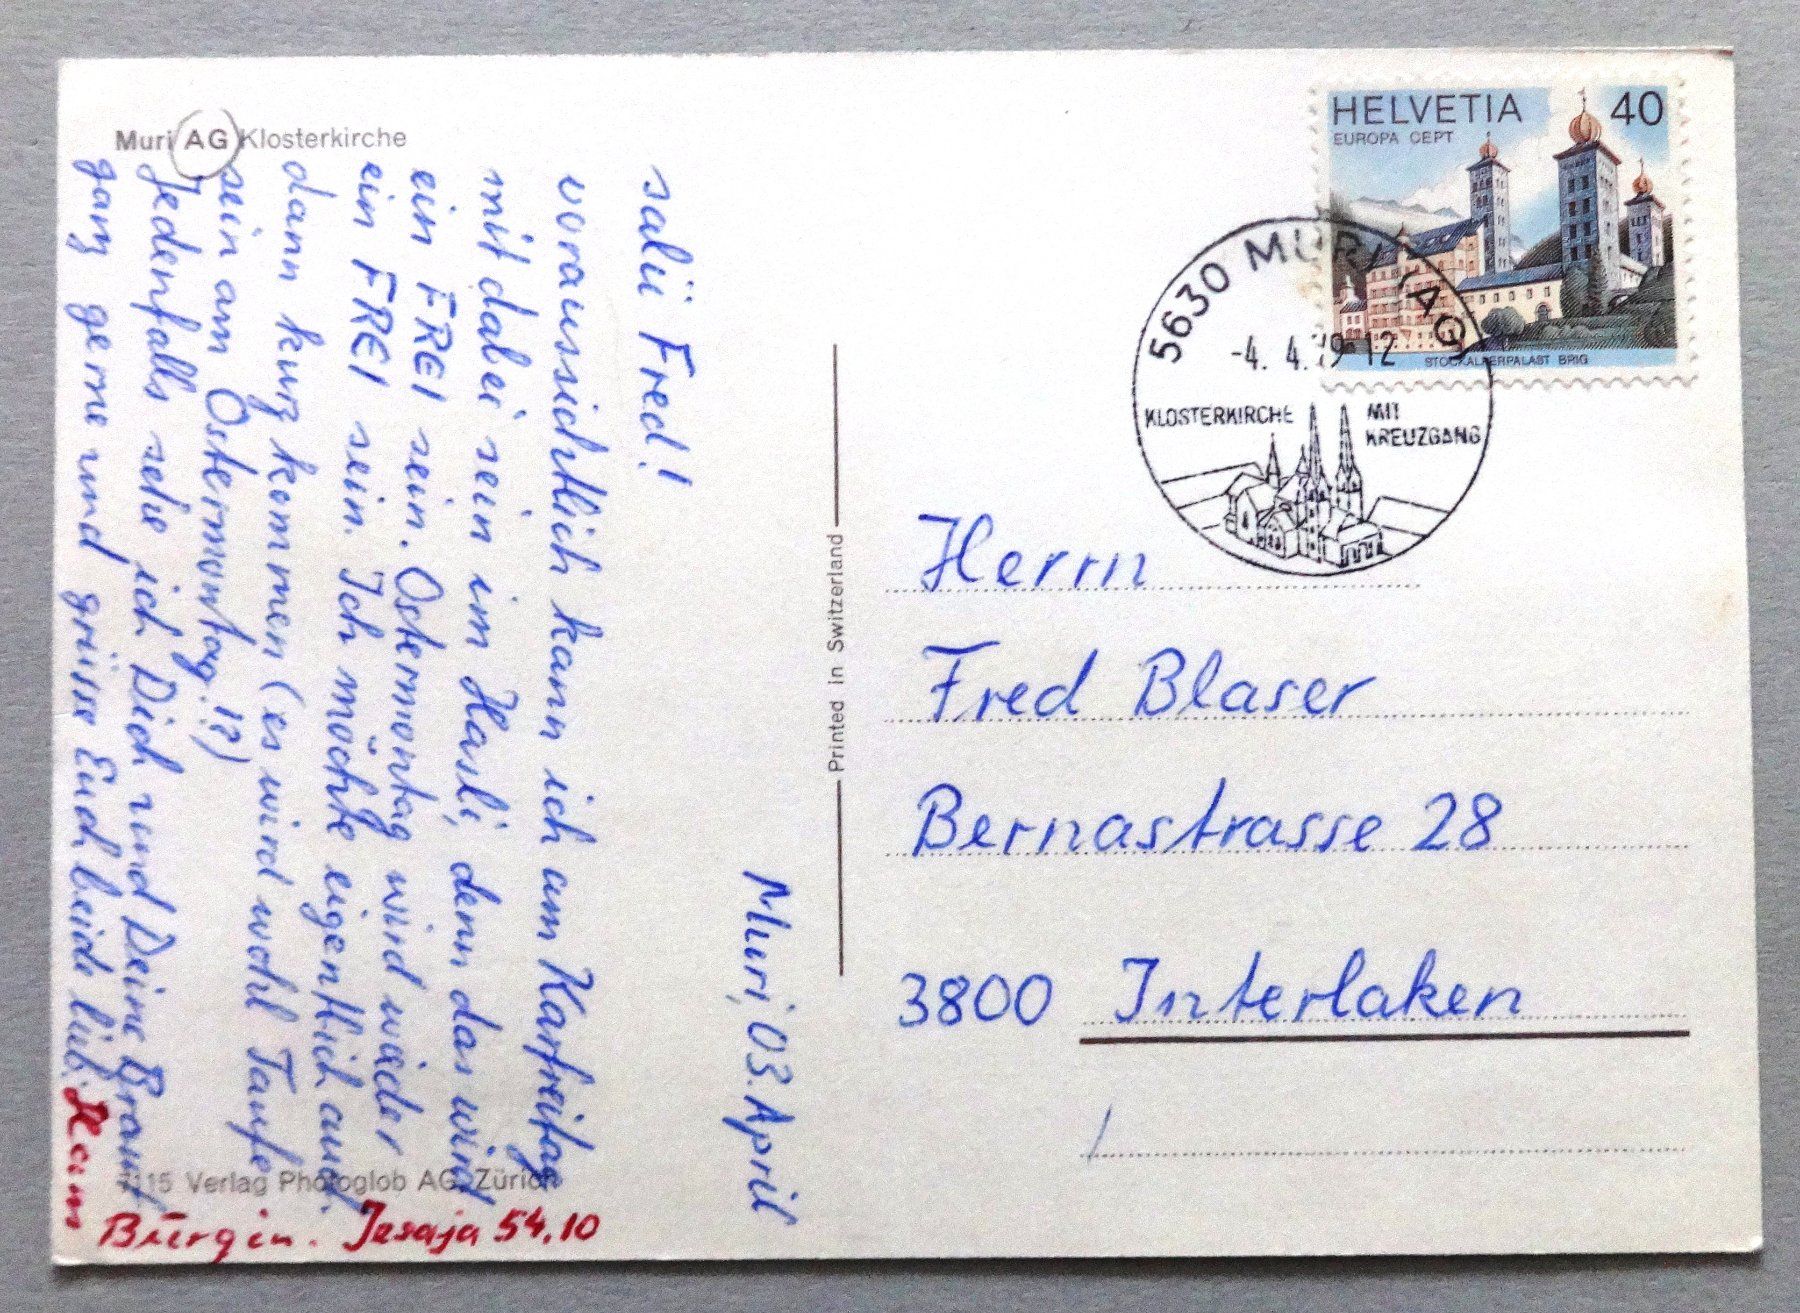 Muri AG Klosterkirche
Muri, 03. April
salü Fred!
voraussichtlich kann ich am Karfreitag
mit dabei sein im Hasli, denn das wird
ein FREI sein. Ostermontag wird wieder
ein FREI sein. Ich möchte eigentlich auch
dann kurz kommen (es wird wohl Taufe
sein am Ostermontag!?)
Jedenfalls sehe ich Dich und Deine Braut
ganz gerne und grüsse Euch beide lieb.
Bürgin. Jesaja 54,10
7115 Verlag Photoglob AG, Zürich
Printed in Switzerland
HELVETIA 40
EUROPA CEPT
STOCKALPERPALAST BRIG
5630 MURI AG
-4. 4. 79 12
KLOSTERKIRCHE MIT
KREUZGANG
Herrn
Fred Blaser
Bernastrasse 28
3800 Interlaken